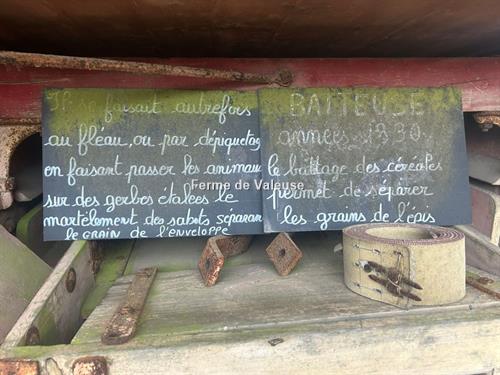 Il se faisait autrefois
au fléau, ou par dépiquetag
en faisant passer les animau
sur des gerbes étalées le
martèlement des sabots séparan
le GRAIN de l'enveloppe
BATTEUSE
années 1930
le battage des céréales
permet de séparer
les grains de l'épis
Ferme de Valeuse